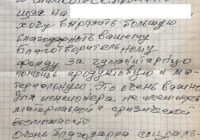 хочу выразить большую
благодарность вашему
благотворительному
фонду за гуманитарную
помощь продуктовую и ма-
териальную. Это очень важно
для пенсионера не
и физической
очень благодарна